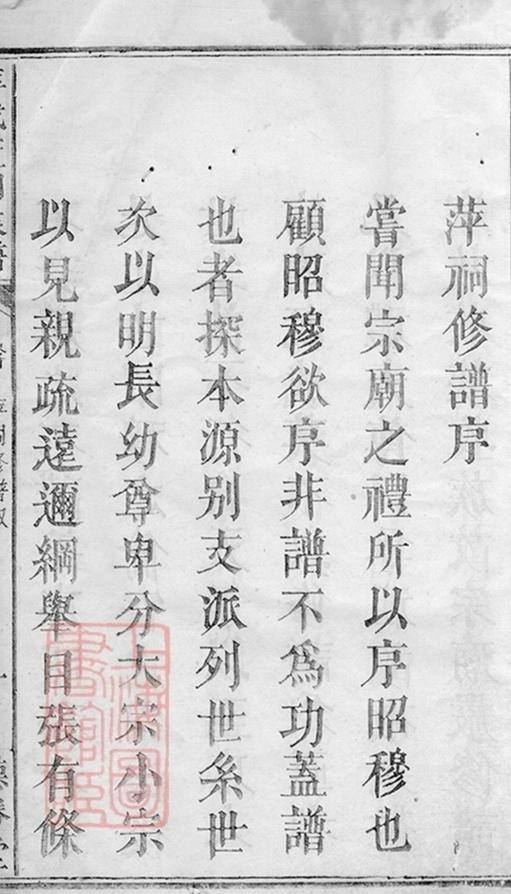 萍祠修譜序
嘗聞宗廟之禮所以序昭穆也
顧昭穆欲序非譜不爲功蓋譜
也者探本源别支派列世系世
次以明長幼尊卑分大宗小宗
以見親疏遠邇綱舉目張有條